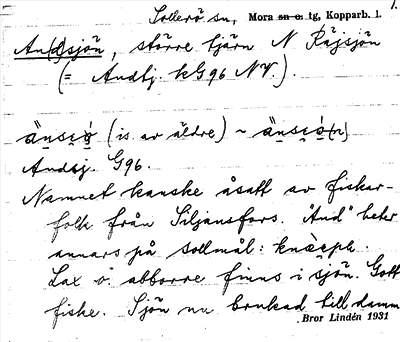 1.
Sollerö sn, Mora sn o. tg, Kopparb. l.
An(d)sjön, större tjärn N Råjsjön
(= Andtj. kG96 NV.).
än̥sı̣ǫ́ (is av äldre) ~ än̥sı̣ǫ́(n)
Andsj. G96.
Namnet kanske åsatt av fiskar-
folk från Siljansfors. "And" heter
annars på sollmål:
Lax o. abborre finns i sjön. Gott
fiske. Sjön nu brukad till damm
Bror Lindén 1931